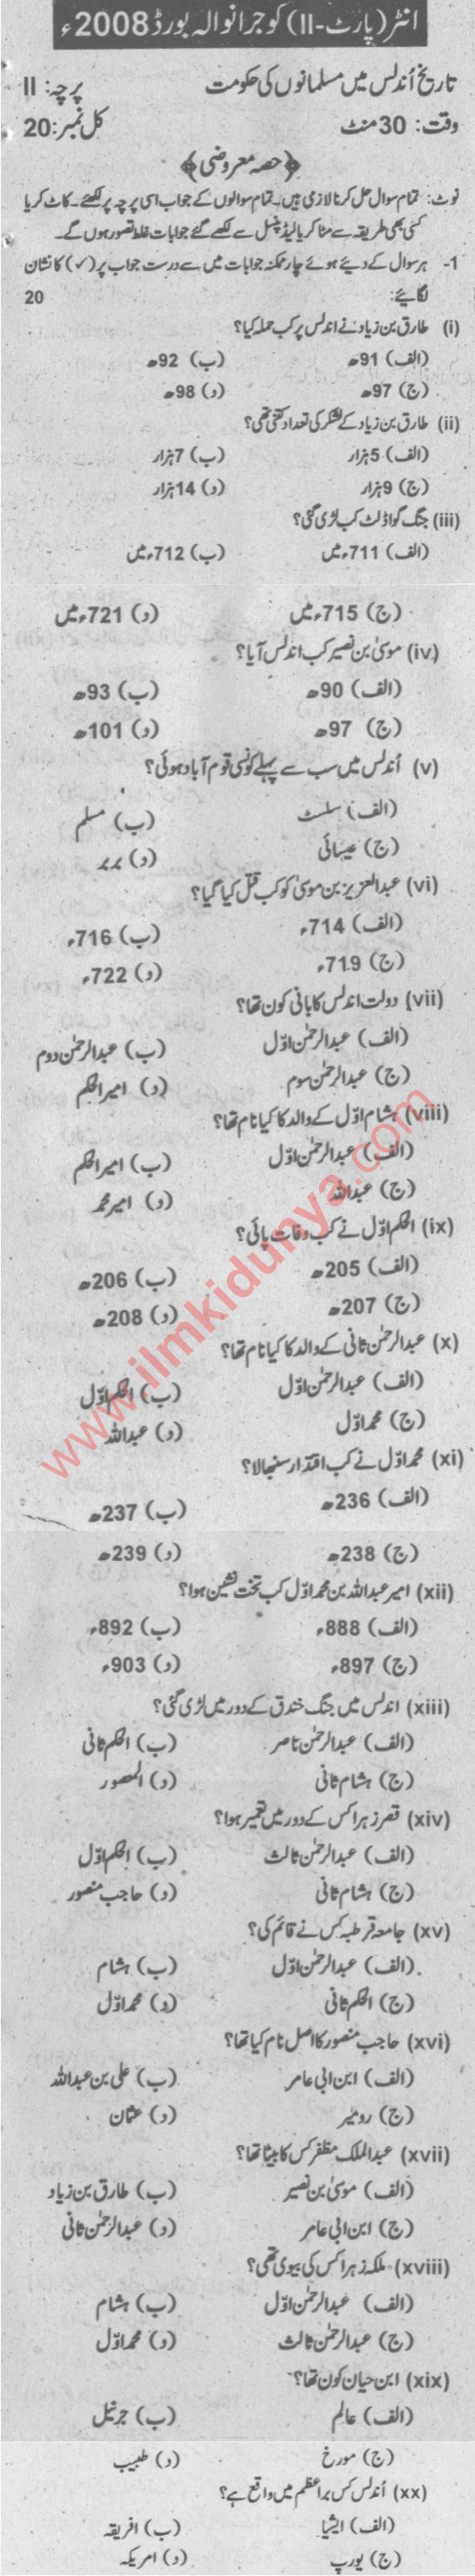 انٹر (پارٹ-II) گوجرانوالہ بورڈ 2008ء
تاریخ اُندلس میں مسلمانوں کی حکومت پرچہ: II
وقت: 30 منٹ کل نمبر: 20
﴿حصہ معروضی﴾
نوٹ: تمام سوال حل کرنا لازمی ہیں۔ تمام سوالوں کے جواب اسی پرچہ پر لکھئے۔ کاٹ کر یا
کسی بھی طریقہ سے مٹا کر یا لیڈ پنسل سے لکھے گئے جوابات غلط تصور ہوں گے۔
1- ہر سوال کے دیئے ہوئے چار ممکنہ جوابات میں سے درست جواب پر (✓) کا نشان
لگائیے: 20
(i) طارق بن زیاد نے اندلس پر کب حملہ کیا؟
(الف) 91ھ (ب) 92ھ
(ج) 97ھ (د) 98ھ
(ii) طارق بن زیاد کے لشکر کی تعداد کتنی تھی؟
(الف) 5 ہزار (ب) 7 ہزار
(ج) 9 ہزار (د) 14 ہزار
(iii) جنگ گواڈلٹ کب لڑی گئی؟
(الف) 711ء میں (ب) 712ء میں
(ج) 715ء میں (د) 721ء میں
(iv) موسیٰ بن نصیر کب اندلس آیا؟
(الف) 90ھ (ب) 93ھ
(ج) 97ھ (د) 101ھ
(v) اُندلس میں سب سے پہلے کونسی قوم آباد ہوئی؟
(الف) سلٹ (ب) مسلم
(ج) عیسائی (د) بربر
(vi) عبدالعزیز بن موسیٰ کو کب قتل کیا گیا؟
(الف) 714ء (ب) 716ء
(ج) 719ء (د) 722ء
(vii) دولت اندلس کا بانی کون تھا؟
(الف) عبدالرحمٰن اوّل (ب) عبدالرحمٰن دوم
(ج) عبدالرحمٰن سوم (د) امیر الحکم
(viii) ہشام اوّل کے والد کا کیا نام تھا؟
(الف) عبدالرحمٰن اوّل (ب) امیر الحکم
(ج) عبداللہ (د) امیر محمد
(ix) الحکم اوّل نے کب وفات پائی؟
(الف) 205ھ (ب) 206ھ
(ج) 207ھ (د) 208ھ
(x) عبدالرحمٰن ثانی کے والد کا کیا نام تھا؟
(الف) عبدالرحمٰن اوّل (ب) الحکم اوّل
(ج) محمد اوّل (د) عبداللہ
(xi) محمد اوّل نے کب اقتدار سنبھالا؟
(الف) 236ھ (ب) 237ھ
(ج) 238ھ (د) 239ھ
(xii) امیر عبداللہ بن محمد اوّل کب تخت نشین ہوا؟
(الف) 888ء (ب) 892ء
(ج) 897ء (د) 903ء
(xiii) اندلس میں جنگ خندق کے دور میں لڑی گئی؟
(الف) عبدالرحمٰن ناصر (ب) الحکم ثانی
(ج) ہشام ثانی (د) المنصور
(xiv) قصر زہرا کس کے دور میں تعمیر ہوا؟
(الف) عبدالرحمٰن ثالث (ب) الحکم اوّل
(ج) ہشام ثانی (د) حاجب منصور
(xv) جامعہ قرطبہ کس نے قائم کی؟
(الف) عبدالرحمٰن اوّل (ب) ہشام
(ج) الحکم ثانی (د) محمد اوّل
(xvi) حاجب منصور کا اصل نام کیا تھا؟
(الف) ابن ابی عامر (ب) علی بن عبداللہ
(ج) رومیر (د) عثمان
(xvii) عبدالملک مظفر کس کا بیٹا تھا؟
(الف) موسیٰ بن نصیر (ب) طارق بن زیاد
(ج) ابن ابی عامر (د) عبدالرحمٰن ثانی
(xviii) ملکہ زہرا کس کی بیوی تھی؟
(الف) عبدالرحمٰن اوّل (ب) ہشام
(ج) عبدالرحمٰن ثالث (د) محمد اوّل
(xix) ابن حیان کون تھا؟
(الف) عالم (ب) جرنیل
(ج) مورخ (د) طبیب
(xx) اُندلس کس براعظم میں واقع ہے؟
(الف) ایشیا (ب) افریقہ
(ج) یورپ (د) امریکہ
www.ilmkidunya.com